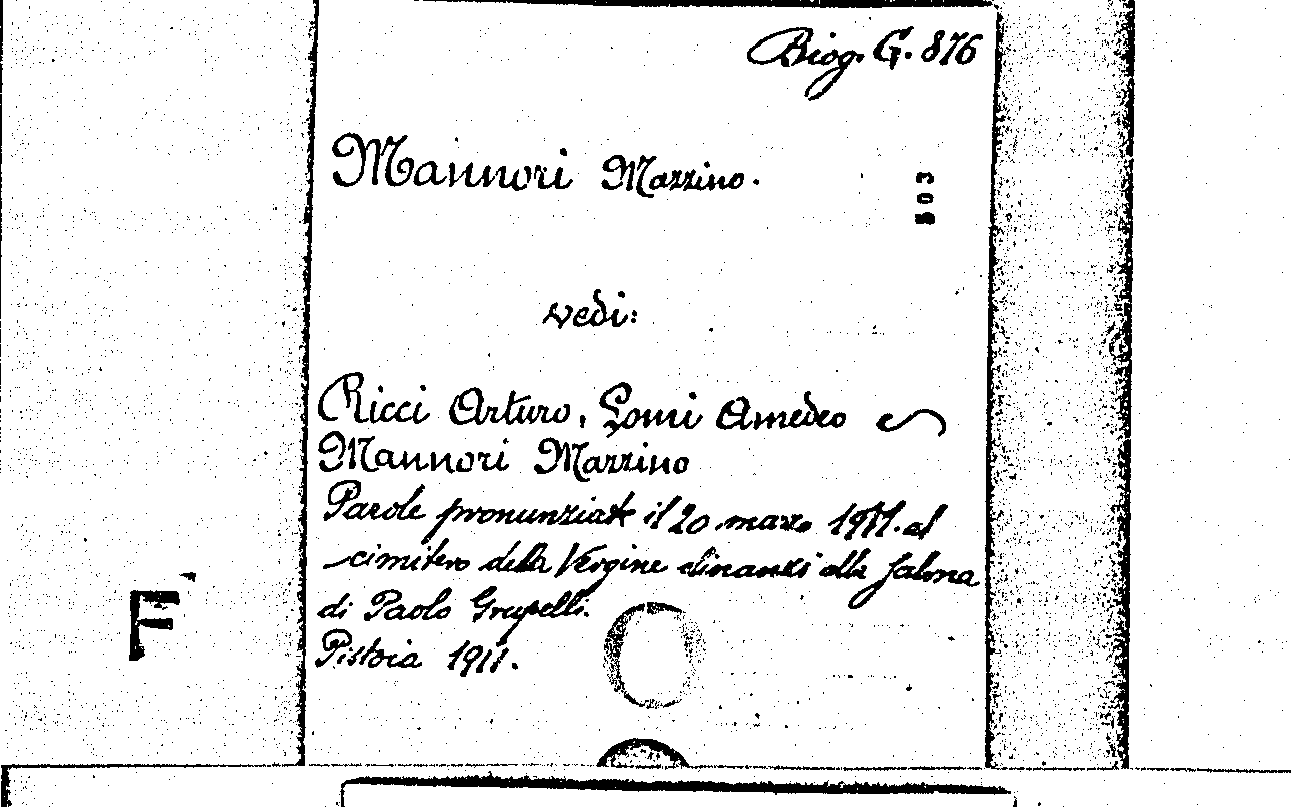 Biog. G. 876
Mannori Mazzino.
503
vedi:
Ricci Arturo, Lomi Amedeo e
Mannori Mazzino
Parole pronunziate il 20 marzo 1911. al
cimitero della Vergine dinanzi alla salma
di Paolo Grupelli.
Pistoia 1911.
F